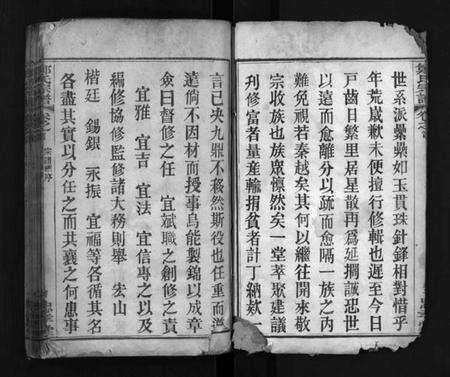 世系派彙彙如玉貫珠針鋒相對惜乎
年荒歲歉未便擅行修輯也遲至今日
戸齒日繁里居星散再為延擱誠恐世
以遠而愈離分以疏而愈隔一族之內
難免視若秦越矣其何以繼往開來敬
宗收族也族眾懔然矣一堂萃聚建議
刋修富者量産輸捐貧者計丁納欵一
言已央九鼎不移然斯役也任重而道
遠倘不因材而授事烏能製錦以成章
僉曰督修之任 宜斌職之創修之責
宜雅 宜吉 宜法 宜信專之以及
編修協修監修諸大務則舉 宏山
楷廷 錫銀 永振 宜福等各循其名
各盡其實以分任之而其襄之何患事
氏宗譜 卷之